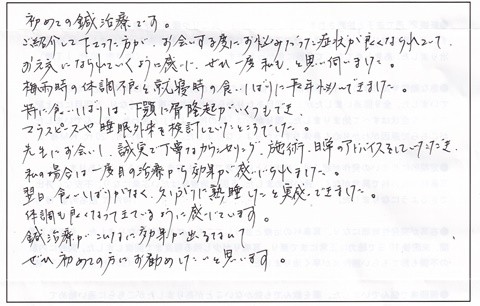 初めての鍼治療です。
ご紹介して下さった方が、お会いする度にお悩みだった症状が良くなられていて、
お元気になられていくように感じ、ぜひ一度私も、と思い伺いました。
梅雨時の体調不良と就寝時の食いしばりに長年悩んできました。
特に食いしばりは、下顎に骨隆起がいくつもでき、
マウスピースや睡眠外来を検討していたところでした。
先生にお会いし、誠実で丁寧なカウンセリング、施術、日常のアドバイスをしていただき、
私の場合は一度目の治療から効果が感じられました。
翌日、食いしばりがなく、久しぶりに熟睡したと実感できました。
体調も良くなってきているように感じています。
鍼治療がこんなに効果が出るなんて
ぜひ初めての方にお勧めしたいと思います。